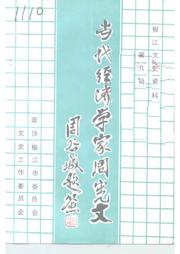 1110
椒江文史资料
第九辑
当代经济学家周光文
周谷城题签
政协椒江市委员会
文史工作委员会